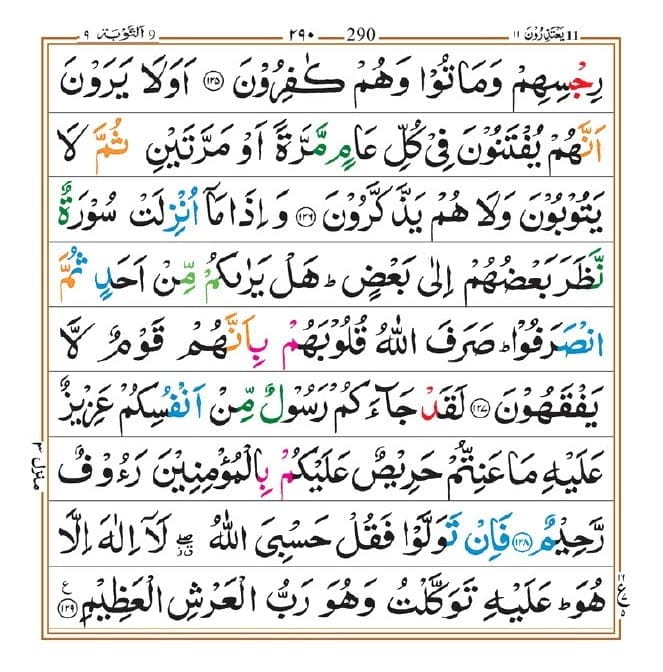 ٩ التوبة 9 ٢٩٠ 290 ١١ يعتذرون 11
رِجْسِهِمْ وَمَاتُوْا وَهُمْ كٰفِرُوْنَ ۝١٢٥ اَوَلَا يَرَوْنَ
اَنَّهُمْ يُفْتَنُوْنَ فِيْ كُلِّ عَامٍ مَّرَّةً اَوْ مَرَّتَيْنِ ثُمَّ لَا
يَتُوْبُوْنَ وَلَا هُمْ يَذَّكَّرُوْنَ ۝١٢٦ وَاِذَا مَاۤ اُنْزِلَتْ سُوْرَةٌ
نَّظَرَ بَعْضُهُمْ اِلٰى بَعْضٍ ؕ هَلْ يَرٰىكُمْ مِّنْ اَحَدٍ ثُمَّ
انْصَرَفُوْا ؕ صَرَفَ اللّٰهُ قُلُوْبَهُمْ بِاَنَّهُمْ قَوْمٌ لَّا
يَفْقَهُوْنَ ۝١٢٧ لَقَدْ جَآءَكُمْ رَسُوْلٌ مِّنْ اَنْفُسِكُمْ عَزِيْزٌ
عَلَيْهِ مَا عَنِتُّمْ حَرِيْصٌ عَلَيْكُمْ بِالْمُؤْمِنِيْنَ رَءُوْفٌ
رَّحِيْمٌ ۝١٢٨ فَاِنْ تَوَلَّوْا فَقُلْ حَسْبِيَ اللّٰهُ ۖ ق ز لَاۤ اِلٰهَ اِلَّا
هُوَ ؕ عَلَيْهِ تَوَكَّلْتُ وَهُوَ رَبُّ الْعَرْشِ الْعَظِيْمِ ۝١٢٩ ع
منزل ٢